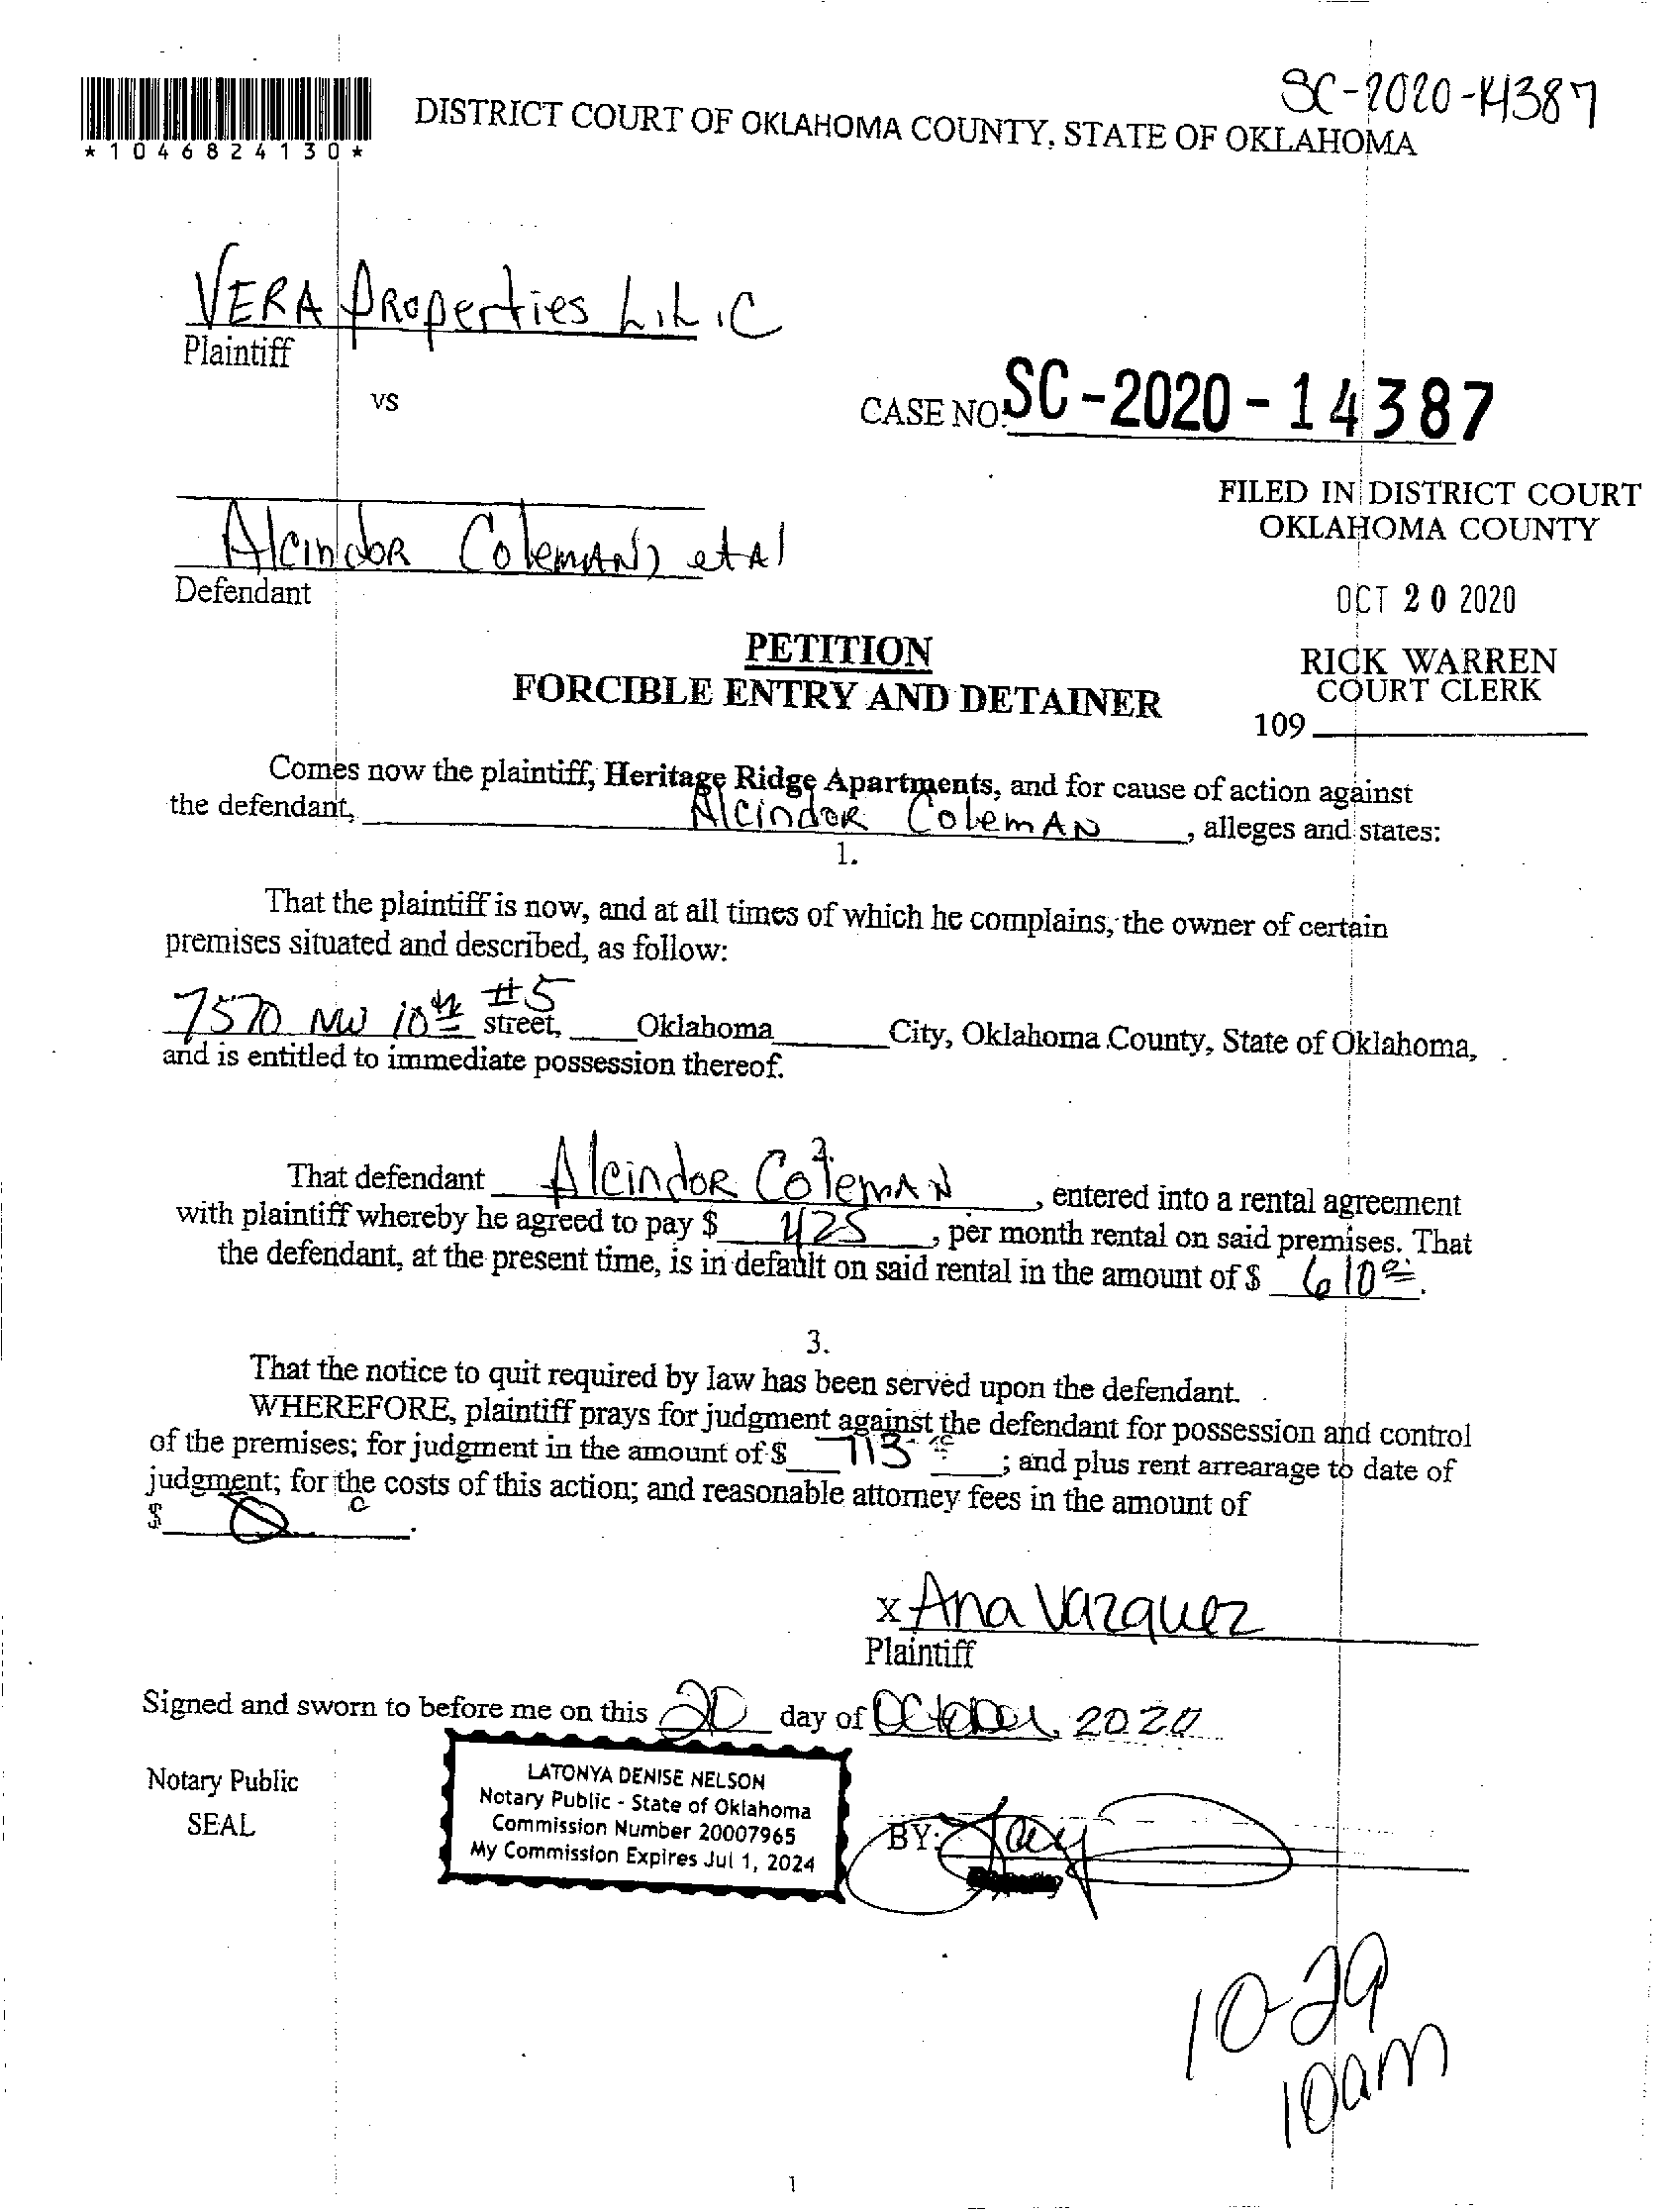 SC-2020-14387
DISTRICT COURT OF OKLAHOMA COUNTY, STATE OF OKLAHOMA
*1046824130*
VERA PRoperties L.L.C
Plaintiff
vs
CASE NO. SC-2020-14387
FILED IN DISTRICT COURT
OKLAHOMA COUNTY
Alcindor Coleman, et Al
Defendant
OCT 20 2020
PETITION
RICK WARREN
COURT CLERK
FORCIBLE ENTRY AND DETAINER
109
Comes now the plaintiff, Heritage Ridge Apartments, and for cause of action against
the defendant, Alcindor Coleman, alleges and states:
1.
That the plaintiff is now, and at all times of which he complains, the owner of certain
premises situated and described, as follow:
7570 NW 10th #5 street, Oklahoma City, Oklahoma County, State of Oklahoma,
and is entitled to immediate possession thereof.
2.
That defendant Alcindor Coleman, entered into a rental agreement
with plaintiff whereby he agreed to pay $ 425, per month rental on said premises. That
the defendant, at the present time, is in default on said rental in the amount of $ 610.
3.
That the notice to quit required by law has been served upon the defendant.
WHEREFORE, plaintiff prays for judgment against the defendant for possession and control
of the premises; for judgment in the amount of $ 713; and plus rent arrearage to date of
judgment; for the costs of this action; and reasonable attorney fees in the amount of
$ 0.
x Ana Vazquez
Plaintiff
Signed and sworn to before me on this 20 day of October 2020
Notary Public
SEAL
LATONYA DENISE NELSON
Notary Public - State of Oklahoma
Commission Number 20007965
My Commission Expires Jul 1, 2024
BY:
10-29
10am
1